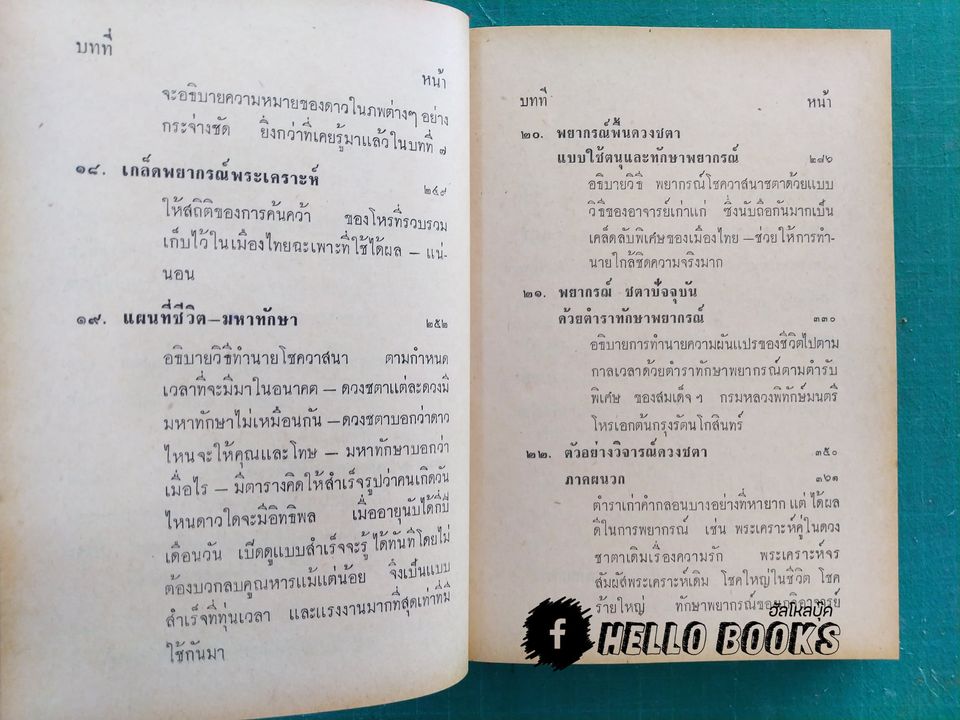 บทที่
หน้า
จะอธิบายความหมายของดาวในภพต่างๆ อย่าง
กระจ่างชัด ยิ่งกว่าที่เคยรู้มาแล้วในบทที่ ๗
๑๘. เกล็ดพยากรณ์พระเคราะห์ ๒๔๙
ให้สถิติของการค้นคว้า ของโหรที่รวบรวม
เก็บไว้ในเมืองไทยฉะเพาะที่ใช้ได้ผล – แน่-
นอน
๑๙. แผนที่ชีวิต–มหาทักษา ๒๕๒
อธิบายวิธีทำนายโชควาสนา ตามกำหนด
เวลาที่จะมีมาในอนาคต – ดวงชตาแต่ละดวงมี
มหาทักษาไม่เหมือนกัน – ดวงชตาบอกว่าดาว
ไหนจะให้คุณและโทษ – มหาทักษาบอกว่า
เมื่อไร – มีตารางคิดให้สำเร็จรูปว่าคนเกิดวัน
ไหนดาวใดจะมีอิทธิพล เมื่ออายุนับได้กี่ปี
เดือนวัน เปิดดูแบบสำเร็จจะรู้ได้ทันทีโดยไม่
ต้องบวกลบคูณหารแม้แต่น้อย จึงเป็นแบบ
สำเร็จที่ทุ่นเวลา และแรงงานมากที่สุดเท่าที่มี
ใช้กันมา
บทที่
หน้า
๒๐. พยากรณ์พื้นดวงชตา
แบบใช้ตนุและทักษาพยากรณ์ ๒๘๖
อธิบายวิธี พยากรณ์โชควาสนาชตาด้วยแบบ
วิธีของอาจารย์เก่าแก่ ซึ่งนับถือกันมากเป็น
เคล็ดลับพิเศษของเมืองไทย –ช่วยให้การทำ-
นายใกล้ชิดความจริงมาก
๒๑. พยากรณ์ ชตาปัจจุบัน
ด้วยตำราทักษาพยากรณ์ ๓๓๐
อธิบายการทำนายความผันแปรของชีวิตไปตาม
กาลเวลาด้วยตำราทักษาพยากรณ์ตามตำรับ
พิเศษ ของสมเด็จ ฯ กรมหลวงพิทักษ์มนตรี
โหรเอกต้นกรุงรัตนโกสินทร์
๒๒. ตัวอย่างวิจารณ์ดวงชตา ๓๕๐
ภาคผนวก ๓๖๑
ตำราเก่าคำกลอนบางอย่างที่หายาก แต่ ได้ผล
ดีในการพยากรณ์ เช่น พระเคราะห์คู่ในดวง
ชาตาเดิมเรื่องความรัก พระเคราะห์จร
สัมผัสพระเคราะห์เดิม โชคใหญ่ในชีวิต โชค
ร้ายใหญ่ ทักษาพยากรณ์
ฮัลโหลบุ๊ค
f HELLO BOOKS